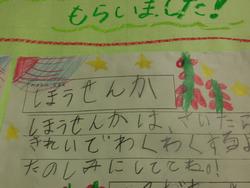 もらいました!
ほうせんか
ほうせんかは、さいたら
きれいでわくわくするよ
たのしみにしててね。!